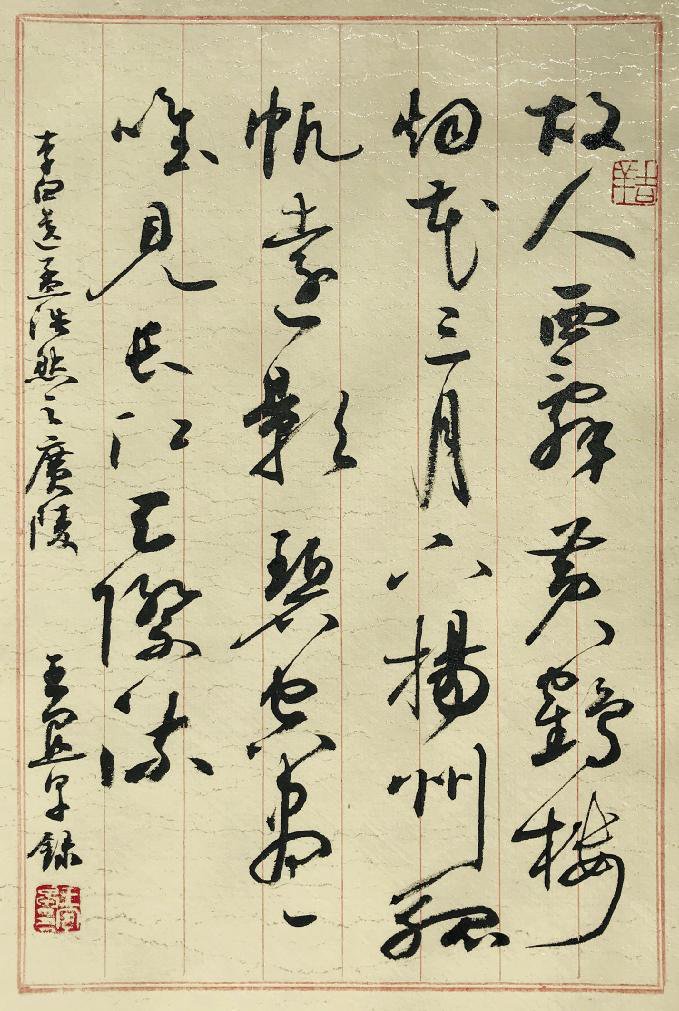 吉羊
故人西辭黄鶴樓
烟花三月下揚州孤
帆遠影碧空盡
唯見長江天際流
李白送孟浩然之廣陵 王草録